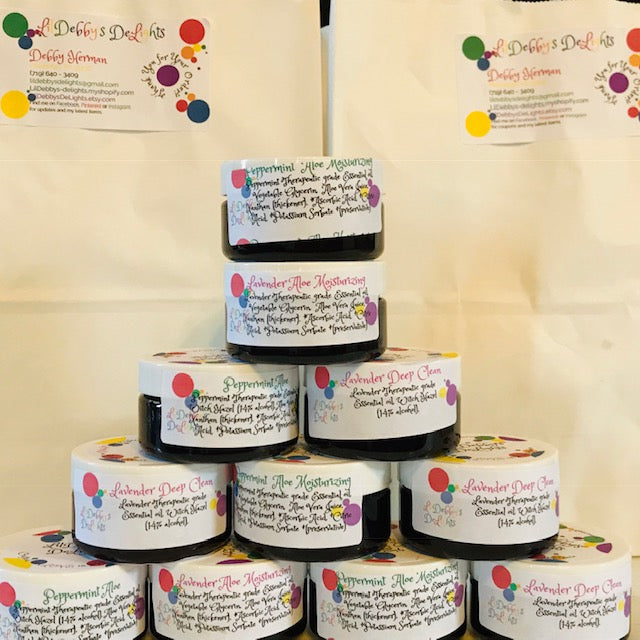 Li Debby's DeLights
Debby Herman
(719) 640 - 3409
lildebbysdelights@gmail.com
LilDebbys-delights.myshopify.com
DebbysDeLights.etsy.com
Find me on Facebook, Pinterest or Instagram
for updates and my latest items.
Thank You for Your Order!
Li Debby's DeLights
Debby Herman
(719) 640 - 3409
lildebbysdelights@gmail.com
LilDebbys-delights.myshopify.com
DebbysDeLights.etsy.com
Find me on Facebook, Pinterest or Instagram
for coupons and my latest items.
Thank You for Your Order!
Peppermint Aloe Moisturizing
Peppermint Therapeutic grade Essential oil
Vegetable Glycerin, Aloe Vera Juice
Xanthan (thickener), *Ascorbic Acid, Citric
Acid, *Potassium Sorbate *(preservative)
Lavender Aloe Moisturizing
Lavender Therapeutic grade Essential oil
Vegetable Glycerin, Aloe Vera Juice
Xanthan (thickener), *Ascorbic Acid, Citric
Acid, *Potassium Sorbate *(preservative)
Peppermint Aloe
Peppermint Therapeutic grade Essential
Witch Hazel (14% alcohol), Aloe
Xanthan (thickener), *Ascorbic
Acid, *Potassium Sorbate *(preservative)
Lavender Deep Clean
Lavender Therapeutic grade
Essential oil, Witch Hazel
(14% alcohol).
Li Debby's
DeLights
Lavender Deep Clean
Lavender Therapeutic grade
Essential oil, Witch Hazel
(14% alcohol).
Li Debby's
DeLights
Peppermint Aloe Moisturizing
Peppermint Therapeutic grade Essential oil
Vegetable Glycerin, Aloe Vera Juice
Xanthan (thickener), *Ascorbic Acid, Citric
Acid, *Potassium Sorbate *(preservative)
Lavender Deep Clean
Lavender Therapeutic grade
Essential oil, Witch Hazel
(14% alcohol).
Li Debby's
DeLights
Peppermint Aloe
Peppermint Therapeutic grade Essential
Witch Hazel (14% alcohol), Aloe Vera
Xanthan (thickener), *Ascorbic
Acid, *Potassium Sorbate *(preservative)
Lavender Aloe Moisturizing
Lavender Therapeutic grade Essential
Vegetable Glycerin, Aloe Vera Juice
Xanthan (thickener), *Ascorbic Acid, Citric
Acid, *Potassium Sorbate *(preservative)
Peppermint Aloe Moisturizing
Peppermint Therapeutic grade Essential oil
Vegetable Glycerin, Aloe Vera Juice
Xanthan (thickener), *Ascorbic Acid, Citric
Acid, *Potassium Sorbate *(preservative)
Lavender Deep Clean
Lavender Therapeutic grade
Essential oil, Witch Hazel
(14% alcohol).
Li Debby's
DeLights